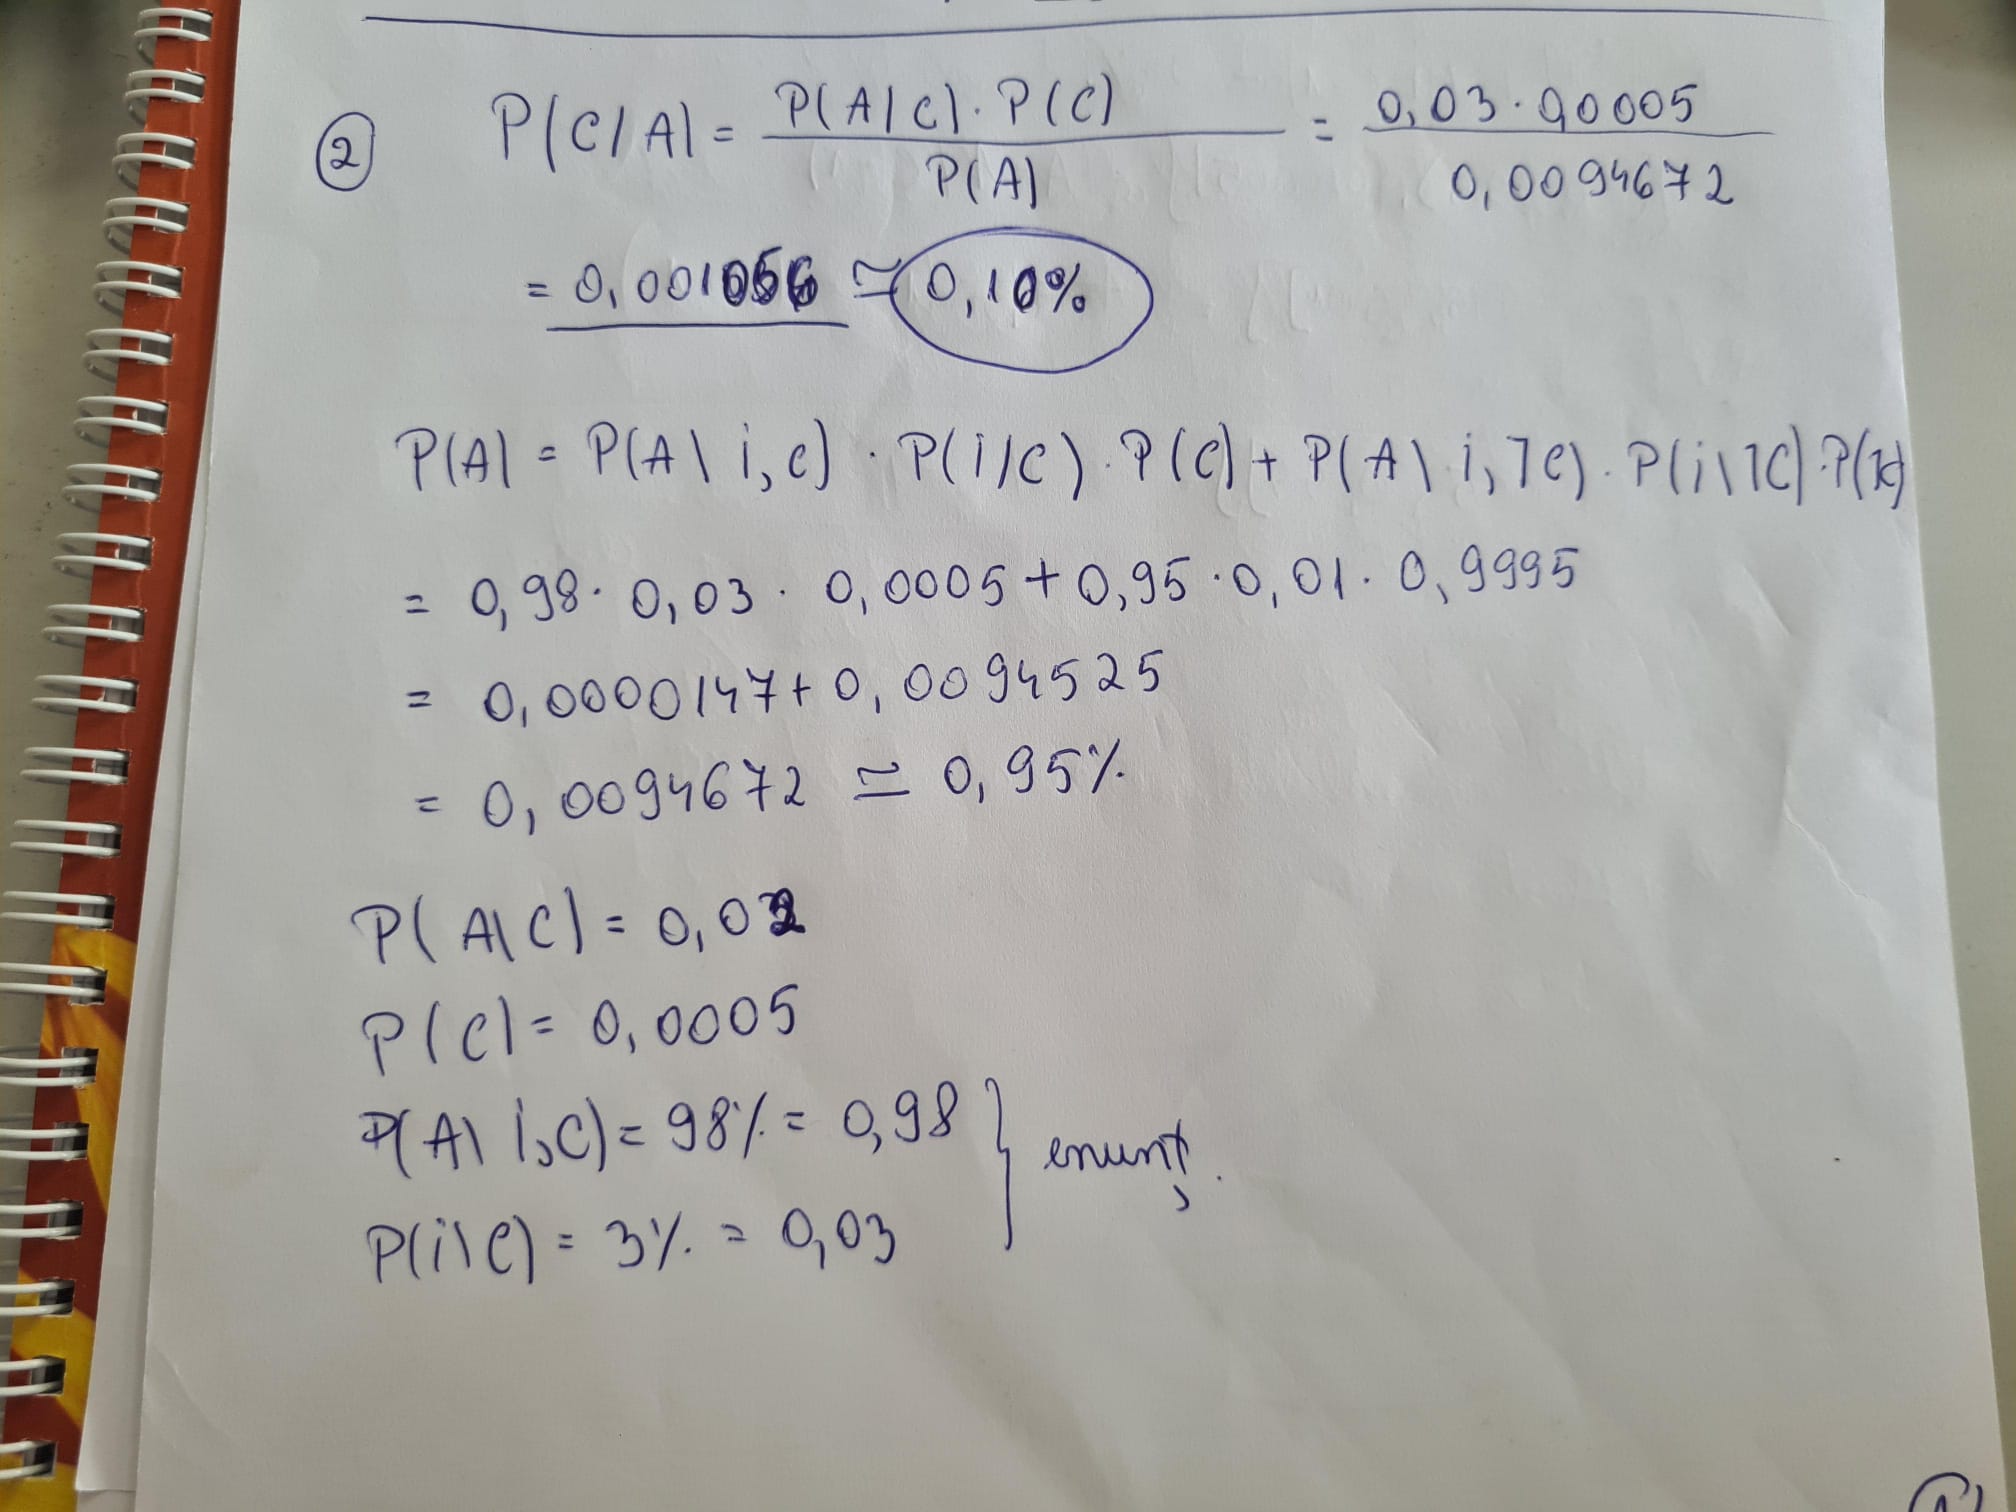 ② P(C/A) = P(A/C) · P(C) / P(A) = 0,03 · 0,0005 / 0,0094672
= 0,001056 ≃ 0,10%
P(A) = P(A\i,c) · P(i/C) · P(C) + P(A\i,7C) · P(i\7C) · P(7C)
= 0,98 · 0,03 · 0,0005 + 0,95 · 0,01 · 0,9995
= 0,0000147 + 0,0094525
= 0,0094672 ≃ 0,95%
P(A\C) = 0,02
P(C) = 0,0005
P(A\i,C) = 98% = 0,98
enunț.
P(i\C) = 3% = 0,03